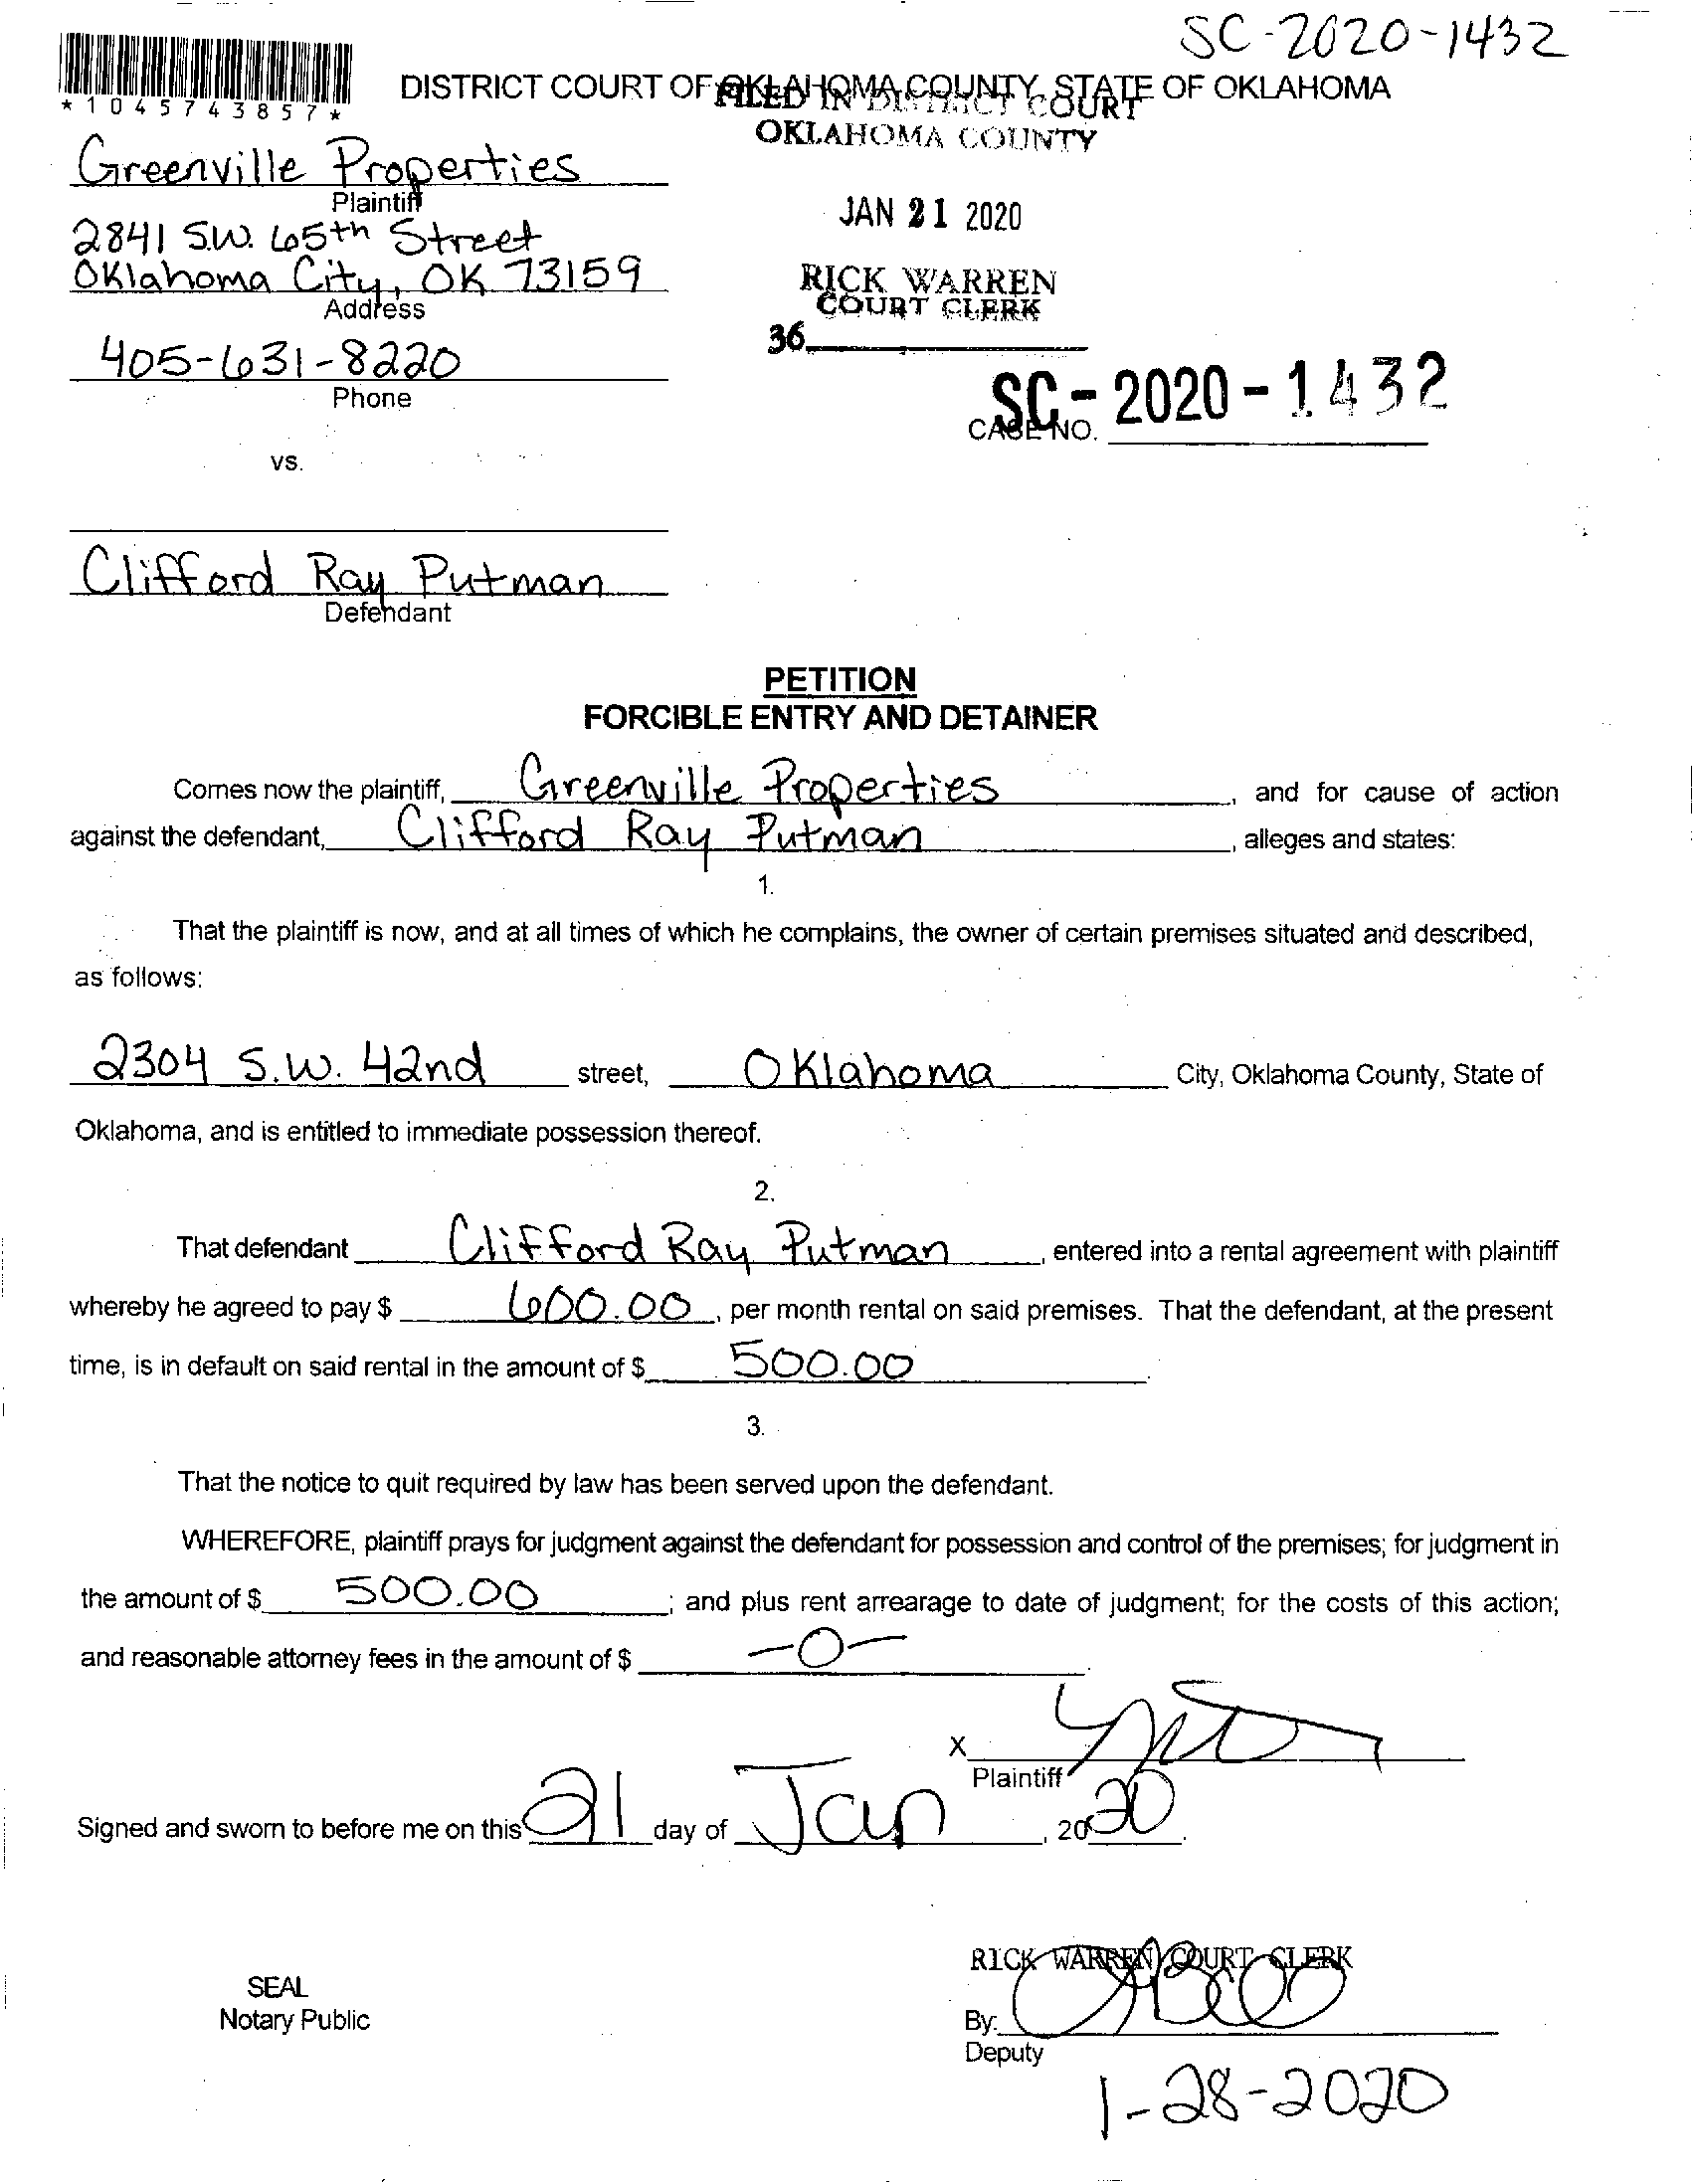 SC-2020-1432
*1045743857*
DISTRICT COURT OF OKLAHOMA COUNTY, STATE OF OKLAHOMA
FILED IN DISTRICT COURT
OKLAHOMA COUNTY
Greenville Properties
Plaintiff
JAN 21 2020
2841 S.W. 65th Street
Oklahoma City, OK 73159
Address
RICK WARREN
COURT CLERK
36
405-631-8220
Phone
SC - 2020 - 1432
CASE NO.
vs.
Clifford Ray Putman
Defendant
PETITION
FORCIBLE ENTRY AND DETAINER
Comes now the plaintiff, Greenville Properties, and for cause of action
against the defendant, Clifford Ray Putman, alleges and states:
1.
That the plaintiff is now, and at all times of which he complains, the owner of certain premises situated and described,
as follows:
2304 S.W. 42nd street, Oklahoma City, Oklahoma County, State of
Oklahoma, and is entitled to immediate possession thereof.
2.
That defendant Clifford Ray Putman, entered into a rental agreement with plaintiff
whereby he agreed to pay $ 600.00, per month rental on said premises. That the defendant, at the present
time, is in default on said rental in the amount of $ 500.00.
3.
That the notice to quit required by law has been served upon the defendant.
WHEREFORE, plaintiff prays for judgment against the defendant for possession and control of the premises; for judgment in
the amount of $ 500.00; and plus rent arrearage to date of judgment; for the costs of this action;
and reasonable attorney fees in the amount of $ -0-.
X
Plaintiff
Signed and sworn to before me on this 21 day of Jan, 2020.
RICK WARREN COURT CLERK
SEAL
Notary Public
By:
Deputy
1-28-2020